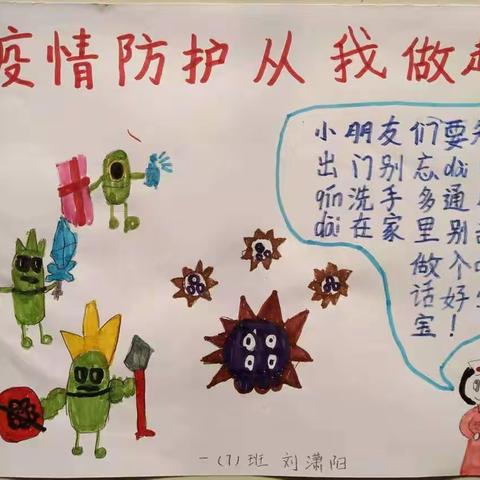 疫情防护从我做起
小朋友们要
出门别忘dài
qín洗手多通
dāi在家里别
做个
话好
宝!
一(7)班 刘潇阳